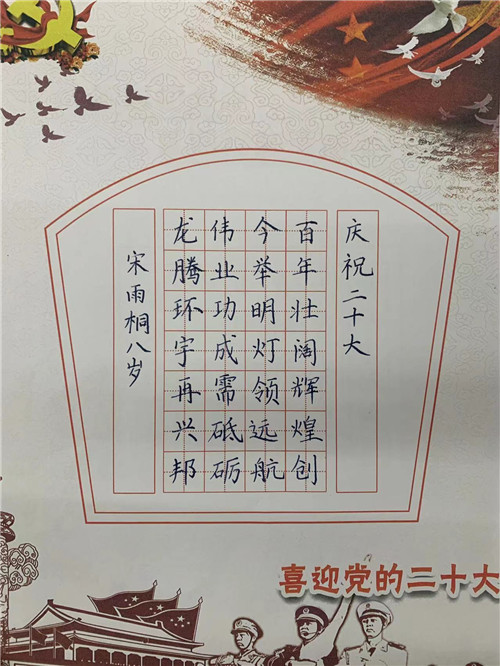 庆祝二十大
百年壮阔辉煌创
今举明灯领远航
伟业功成需砥砺
龙腾环宇再兴邦
宋雨桐八岁
喜迎党的二十大